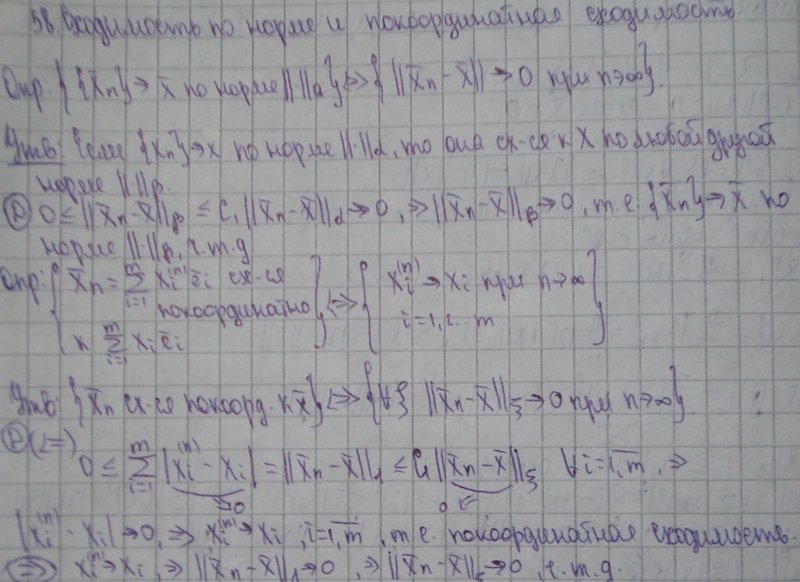 58. Сходимость по норме и покоординатная сходимость.
Опр: { {x̄n}→x̄ по норме ||·||α } ⇔ { ||x̄n-x̄||→0 при n→∞ }.
Утв: Если {x̄n}→x по норме ||·||α, то она сх-ся к X по любой другой
норме ||·||β.
(Д) 0 ≤ ||x̄n-x̄||β ≤ C1||x̄n-x̄||α→0, ⇒ ||x̄n-x̄||β→0, т.е. {x̄n}→x̄ по
норме ||·||β, ч.т.д
Опр: { x̄n = ∑_{i=1}^{m} xi^(n) ēi сх-ся покоординатно к ∑_{i=1}^{m} xi ēi } ⇔ { xi^(n)→xi при n→∞ i=1,2...m }
Утв: { x̄n сх-ся покоорд. к x̄ } ⇔ { ∀ξ ||x̄n-x̄||ξ→0 при n→∞ }.
(Д) (⇐)
0 ≤ ∑_{i=1}^{m} |xi^(n) - xi| = ||x̄n-x̄||1 ≤ C1||x̄n-x̄||ξ ∀i=1,m, ⇒
→0 0←
|xi^(n) - xi|→0, ⇒ xi^(n)→xi, i=1,m, т.е. покоординатная сходимость.
(⇒) xi^(n)→xi, ⇒ ||x̄n-x̄||1→0, ⇒ ||x̄n-x̄||ξ→0, ч.т.д.